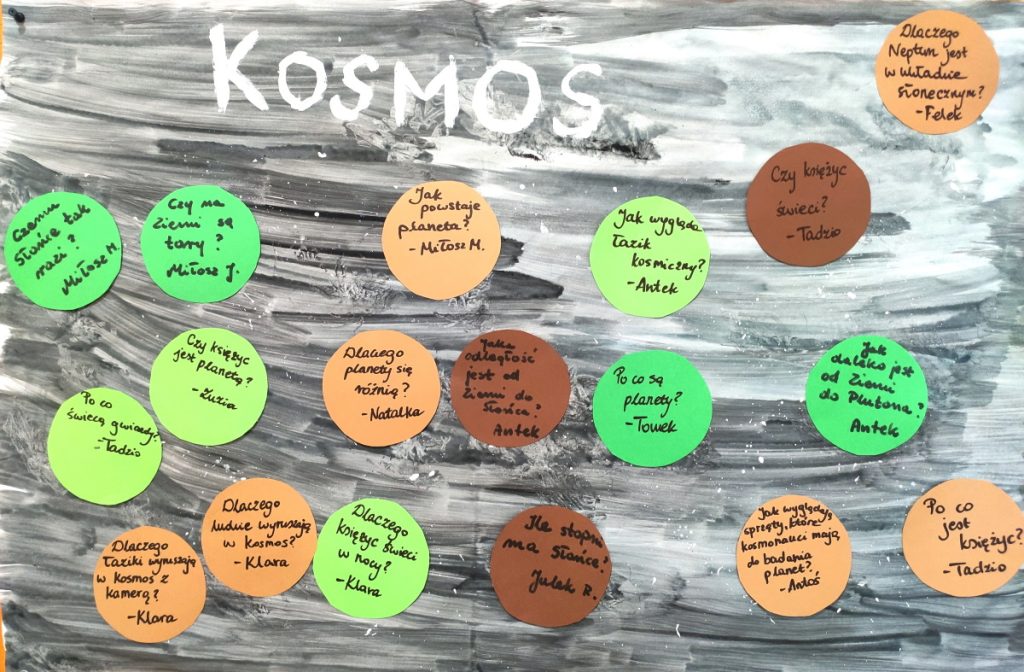 KOSMOS
Dlaczego
Neptun jest
w układzie
słonecznym?
-Felek
Czy księżyc
świeci?
-Tadzio
Czemu
słońce tak
razi?
Miłosz M.
Czy na
Ziemi są
tory?
Miłosz J.
Jak
powstaje
planeta?
-Miłosz M.
Jak wygląda
łazik
kosmiczny?
-Antek
Czy księżyc
jest planetą?
-Zuzia
Dlaczego
planety się
różnią?
-Natalka
Jaka
odległość
jest od
Ziemi do
słońca?
Antek
Po co są
planety?
-Towek
Jak
daleko jest
od Ziemi
do Plutona?
Antek
Po co
świecą gwiazdy?
-Tadzio
Dlaczego
ludzie wyruszają
w kosmos?
-Klara
Dlaczego
łaziki wyruszają
w kosmos z
kamerą?
-Klara
Dlaczego
księżyc świeci
w nocy?
-Klara
Ile stopni
ma słońce?
Julek R.
Jak wyglądają
sprzęty, które
kosmonauci mają
do badania
planet?
-Antoś
Po co
jest
księżyc?
-Tadzio